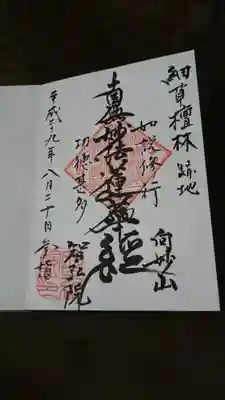 細草檀林 跡地
向妙山
如説修行
南無妙法蓮華経
功徳甚多
智弘院
平成二十九年八月二十日参拝